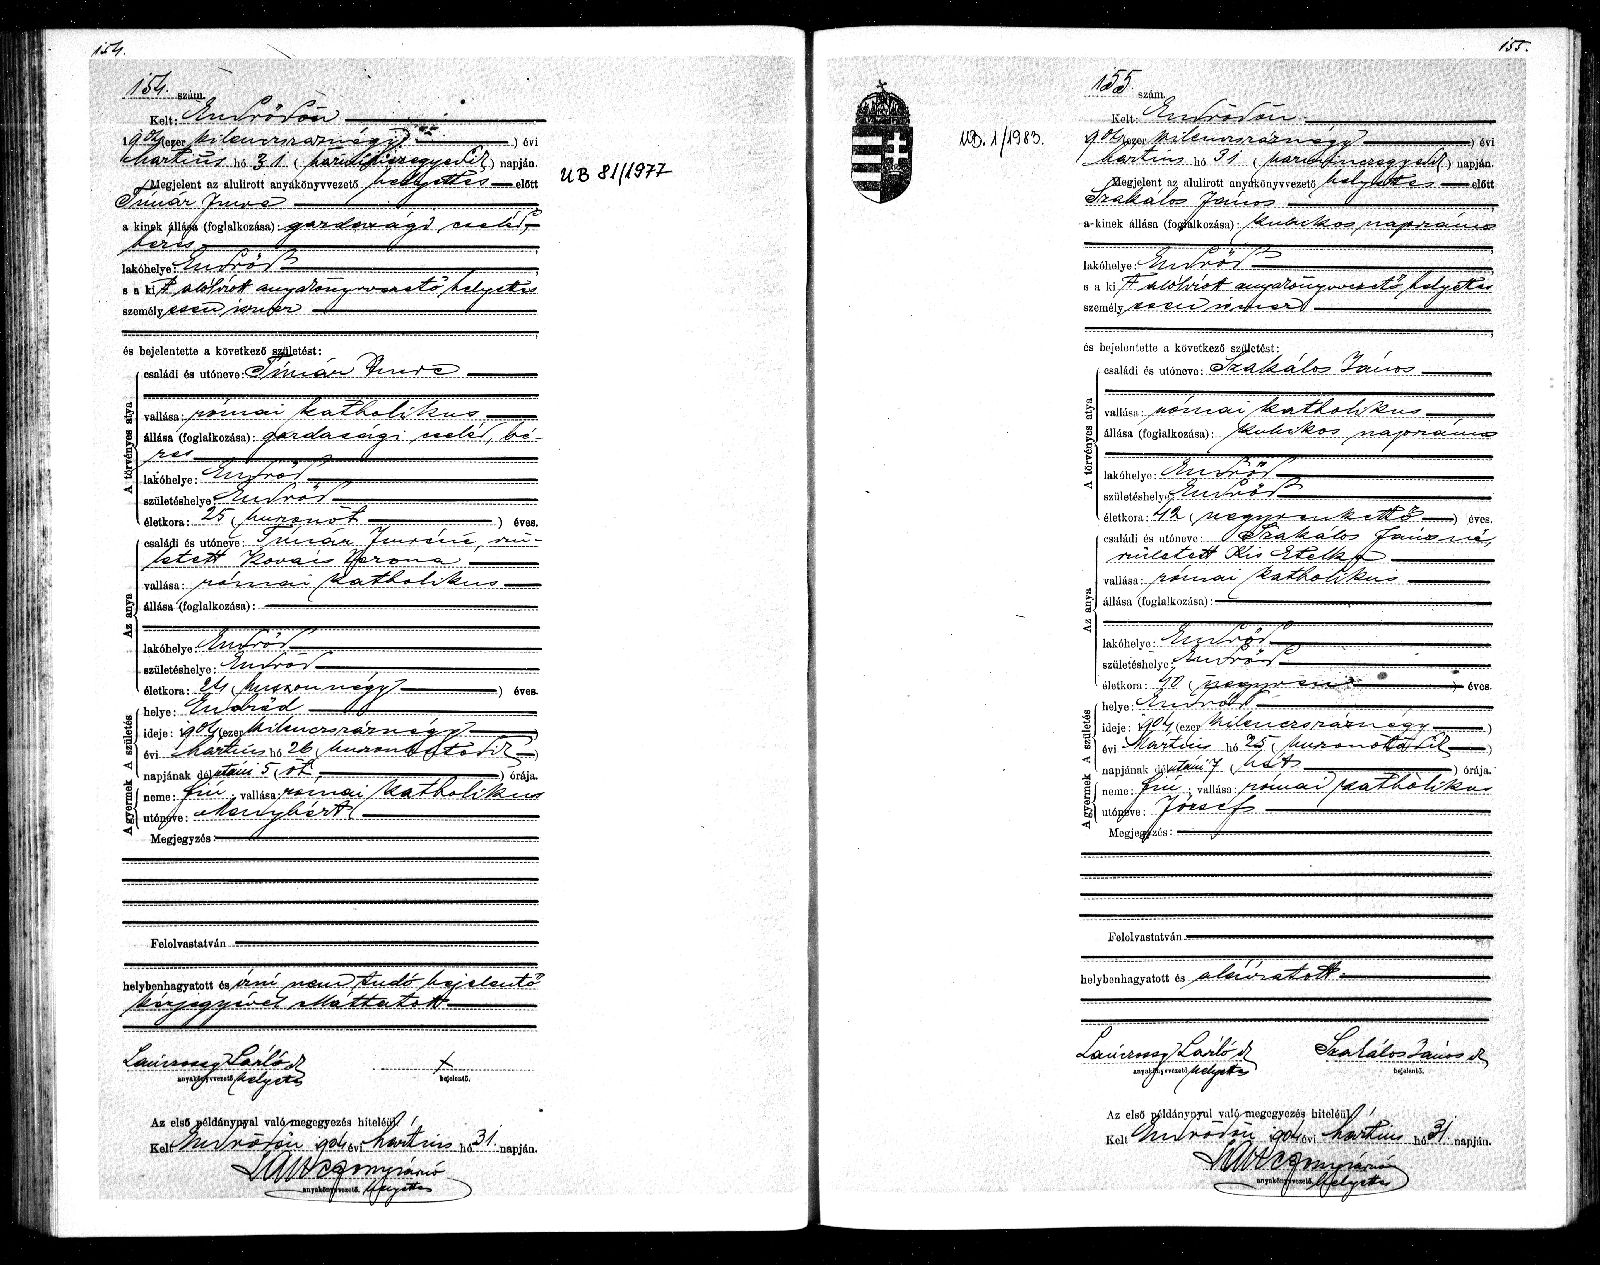 154.
154. szám.
Kelt: Endrődön
1904 (ezer kilencszáznégy) évi
Martius hó 31 (harminczegyedik) napján.
Megjelent az alulirott anyakönyvvezető helyettes előtt
Timár Imre
a kinek állása (foglalkozása): gazdasági cseléd,
béres
lakóhelye: Endrőd
s a ki t alólírott anyakönyvvezető helyettes
személyesen ismer
és bejelentette a következő születést:
A törvényes atya
családi és utóneve: Timár Imre
vallása: római katholikus
állása (foglalkozása): gazdasági cseléd, bé-
res
lakóhelye: Endrőd
születéshelye: Endrőd
életkora: 25 (huszonöt) éves.
Az anya
családi és utóneve: Timár Imréné, szü-
letett Kovács Verona
vallása: római katholikus
állása (foglalkozása):
lakóhelye: Endrőd
születéshelye: Endrőd
életkora: 24 (huszonnégy) éves.
A születés
helye: Endrőd
ideje: 1904 (ezer kilencszáznégy)
évi Martius hó 26 (huszonhatodik)
napjának délutáni 5 (öt) órája.
A gyermek
neme: fiú; vallása: római katholikus
utóneve: Menyhért
Megjegyzés:
Felolvastatván
helybenhagyatott és írni nem tudó bejelentő
kézjegyével elláttatott
anyakönyvvezető helyettes
+
bejelentő.
Az első példánynyal való megegyezés hiteléül
Kelt Endrődön 1904 évi Martius hó 31. napján.
anyakönyvvezető. helyettes
UB 81/1977
155.
155. szám.
UB. 1/1983.
Kelt: Endrődön
1904 (ezer kilencszáznégy) évi
Martius hó 31 (harminczegyedik) napján.
Megjelent az alulirott anyakönyvvezető helyettes előtt
Szakálos János
a kinek állása (foglalkozása): kubikos napszámos
lakóhelye: Endrőd
s a ki t alólírott anyakönyvvezető helyettes
személyesen ismer
és bejelentette a következő születést:
A törvényes atya
családi és utóneve: Szakálos János
vallása: római katholikus
állása (foglalkozása): kubikos napszámos
lakóhelye: Endrőd
születéshelye: Endrőd
életkora: 42 (negyvenkettő) éves.
Az anya
családi és utóneve: Szakálos Jánosné,
született Kis Etelka
vallása: római katholikus
állása (foglalkozása):
lakóhelye: Endrőd
születéshelye: Endrőd
életkora: 40 (negyven) éves.
A születés
helye: Endrőd
ideje: 1904 (ezer kilencszáznégy)
évi Martius hó 25 (huszonötödik)
napjának délutáni 7 (hét) órája.
A gyermek
neme: fiú; vallása: római katholikus
utóneve: József
Megjegyzés:
Felolvastatván
helybenhagyatott és aláíratott
anyakönyvvezető helyettes
Szakálos János
bejelentő.
Az első példánynyal való megegyezés hiteléül
Kelt Endrődön 1904 évi Martius hó 31. napján.
anyakönyvvezető. helyettes